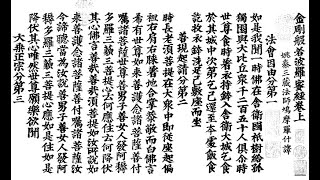 金剛般若波羅蜜經卷上
姚秦三藏法師鳩摩羅什譯
法會因由分第一
如是我聞一時佛在舍衛國祇樹給孤
獨園與大比丘眾千二百五十人俱尒時
世尊食時著衣持鉢入舍衛大城乞食
於其城中次第乞已還至本處飯食
訖收衣鉢洗足已敷座而坐
善現起請分第二
時長老須菩提在大眾中即從座起偏
袒右肩右膝著地合掌恭敬而白佛言
希有世尊如來善護念諸菩薩善付
囑諸菩薩世尊善男子善女人發阿耨
多羅三藐三菩提心云何應住云何降伏
其心佛言善哉善哉須菩提如汝所說如
來善護念諸菩薩善付囑諸菩薩汝
今諦聽當為汝說善男子善女人發阿耨
多羅三藐三菩提心應如是住如是
降伏其心唯然世尊願樂欲聞
大乘正宗分第三